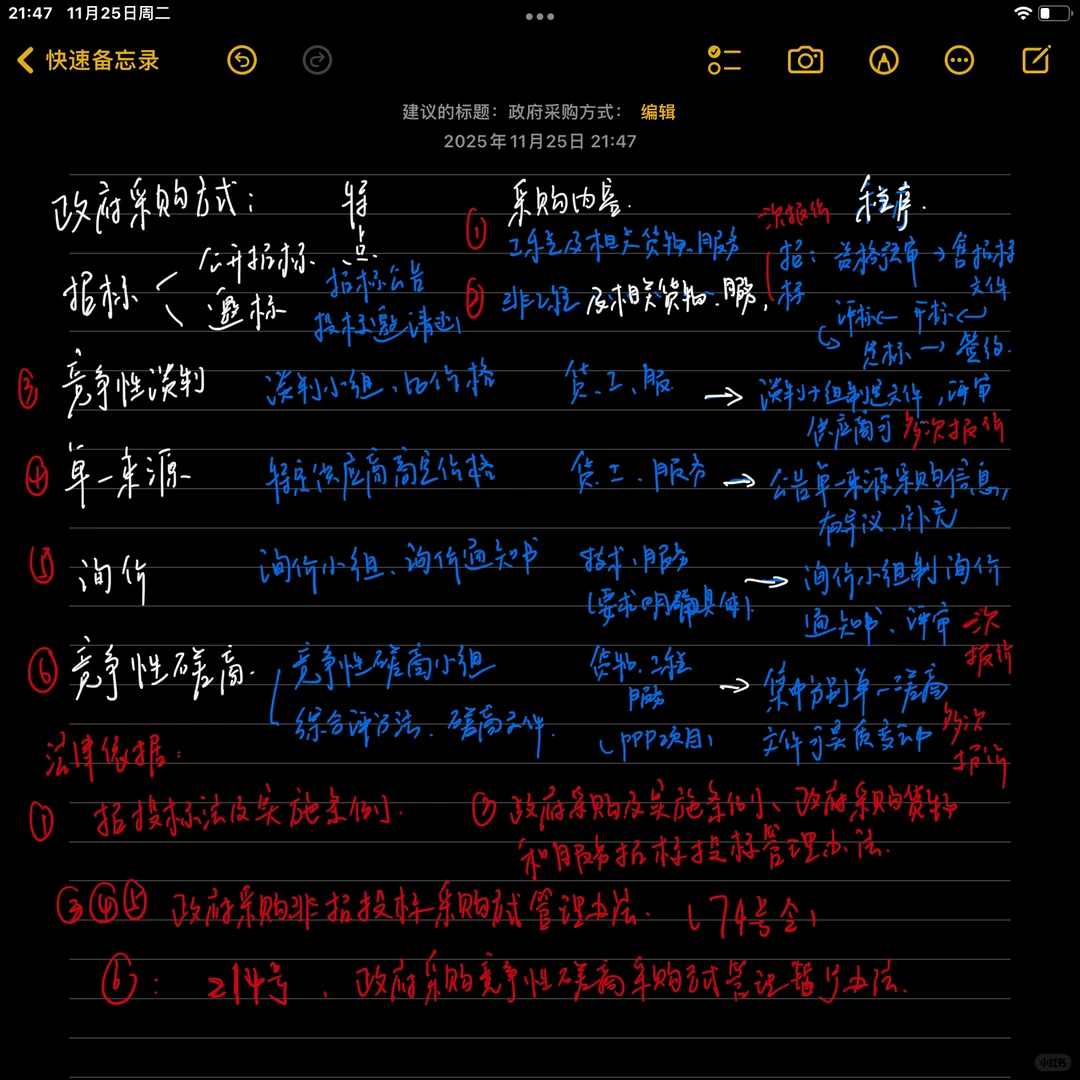 21:47 11月25日周二
快速备忘录
建议的标题：政府采购方式： 编辑
2025年11月25日 21:47
政府采购方式： 特点 采购内容. 程序.
招标 公开招标 邀标
招标公告
投标邀请(书)
① 工程及相关货物.服务
② 非工程及相关货物.服务,
一次报价
招标：资格预审→售招标文件
评标← 开标←
定标→签约.
③ 竞争性谈判 谈判小组、比价格 货、工、服 → 谈判小组制定文件，评审
供应商可多次报价
④ 单一来源 特定供应商商定价格 货.工、服务 → 公告单一来源采购信息,
有异议、补充
⑤ 询价 询价小组、询价通知书 技术、服务
(要求明确具体) → 询价小组制询价
通知书、评审 一次报价
⑥ 竞争性磋商. 竞争性磋商小组 货物.工程
服务 → 集中分别单一磋商
综合评分法、磋商文件. (PPP项目) 文件可实质变动 多次报价
法律依据：
① 招投标法及实施条例. ② 政府采购及实施条例、政府采购货物
和服务招标投标管理办法.
③④⑤ 政府采购非招投标采购方式管理办法. (74号令)
⑥： 214号，政府采购竞争性磋商采购方式管理暂行办法.
小红书